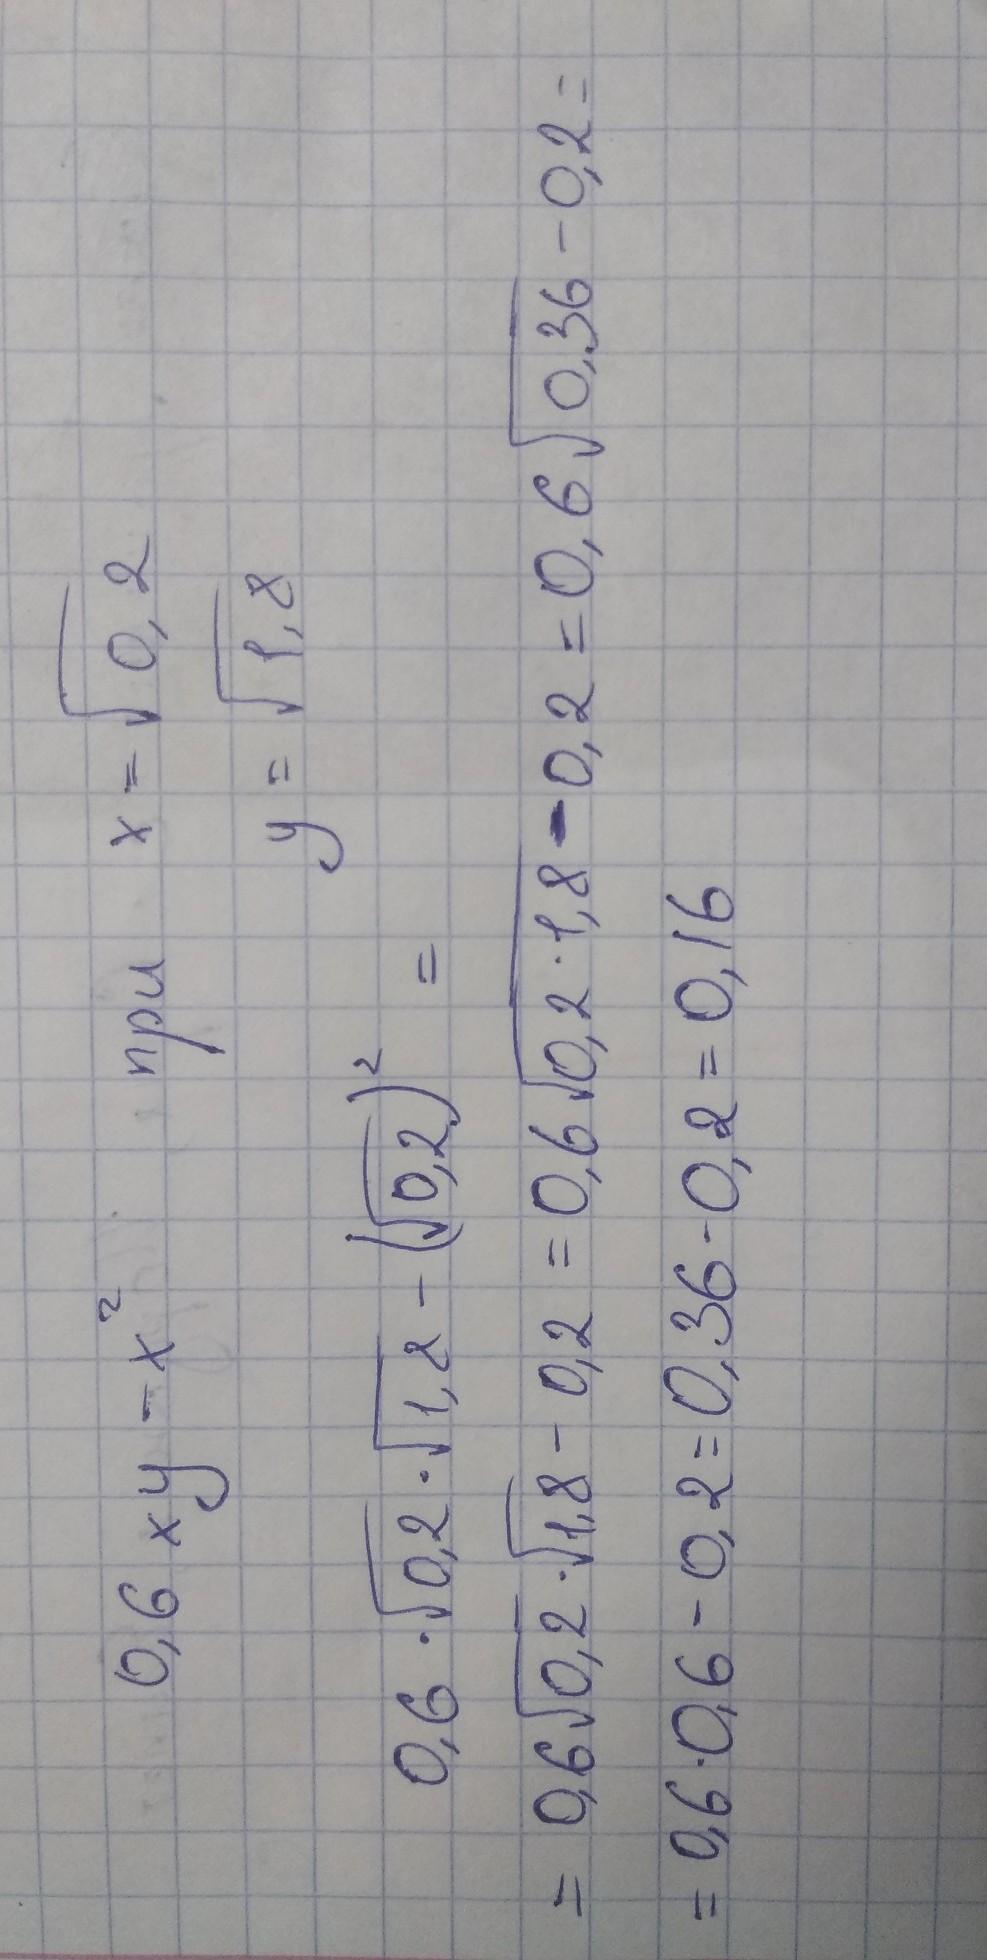 0,6xy - x² при x = √0,2
y = √1,8
0,6 · √0,2 · √1,8 - (√0,2)² =
= 0,6√0,2 · √1,8 - 0,2 = 0,6√0,2 · 1,8 - 0,2 = 0,6√0,36 - 0,2 =
= 0,6 · 0,6 - 0,2 = 0,36 - 0,2 = 0,16